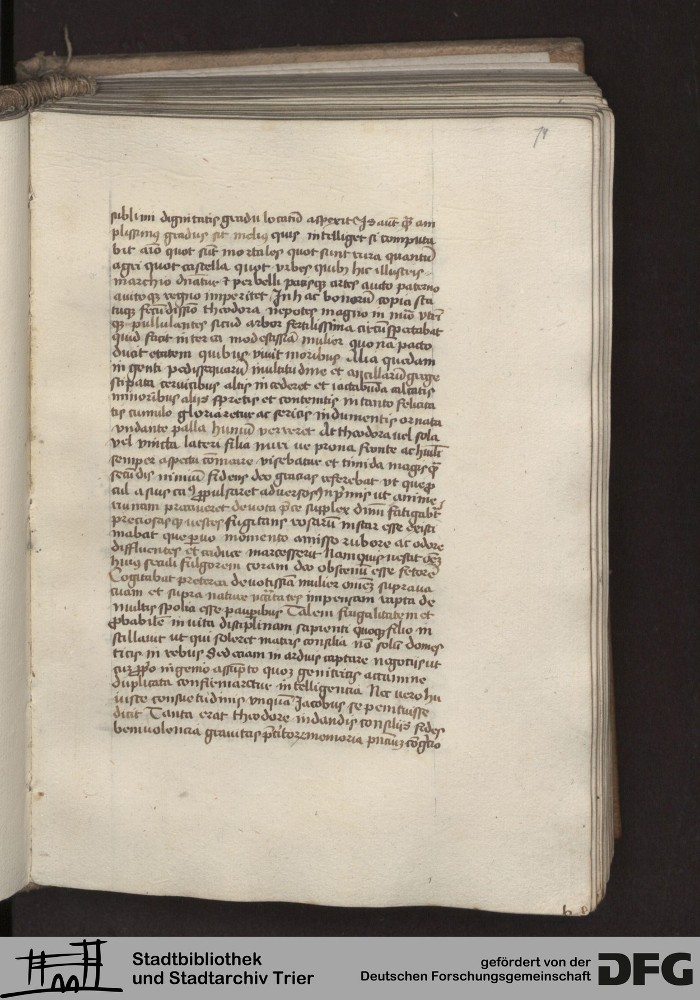 74
sublimi dignitatis gradu locatū aspexit Is aut̄ q̄ am
plissimꝰ gradus sit meliꝰ quis intelliget si computa
bit aīo quot sūt mortales quot sunt rura quantū
agri quot castella quot vrbes quibꝫ hic illustris
marchio dn̄atur ⁊ per belli pacisqꝫ artes auito paterno
auitoqꝫ regno imperitet In hac bonorū copia sta
tuqꝫ fecūdissīo theodora nepotes magno in
qꝫ pullulantes sicud arbor fertilissima circūspectabat
quid fecit interea modestissīa mulier quo nā pacto
duxit etatem quibus vixit moribus Alia quedam
ingenti pedissequarū multitudine et ancillarū grege
stipata cervicibus altis incederet et iactabūda calcatis
minoribus aliis spretis et contemtis in tanto felicita
tis cumulo gloriaretur ac sericis indumentis ornata
vndante palla humū verreret At theodora vel sola
vel vincta lateri filia nurive prona fronte ac
semper aspectu comitate visebatur et timida magisqꝫ
secūdis nimiū fidens deo gracias referebat vt
cul a suis ca propulsaret adversos In prīmis ut anime
precaretur devota prece suplex dīm fatigabat
preciosasqꝫ vestes fugitans rosarū instar esse existi
mabat que parvo momento amisso rubore ac odore
diffluentes et caduce marcesserēt Nam quis nescit oēꝫ
huiꝰ seculi fulgorem coram deo obscenū esse fetorē
Cogitabat preterea devotissīa mulier omēꝫ supravа
cuam et supra nature impensam rapta de
multis spolia esse pauperibus Talem frugalitatem et
probabilē in vita disciplinam sapienti quoqꝫ filio in
stillavit ut qui soleret matris consilia nō solū domes
ticis in rebus sed eciam in arduis captare negociis ut
suꝫ ingenio assūpto quoqꝫ genitricis acumine
duplicata confirmaretur intelligencia Nec vero hu
iusce consuetudinis vnqua Jacobus se penituisse
dicit Tanta erat theodore in dandis consiliis fides
benivolencia gravitas memoria
Stadtbibliothek
und Stadtarchiv Trier
gefördert von der
Deutschen Forschungsgemeinschaft
DFG